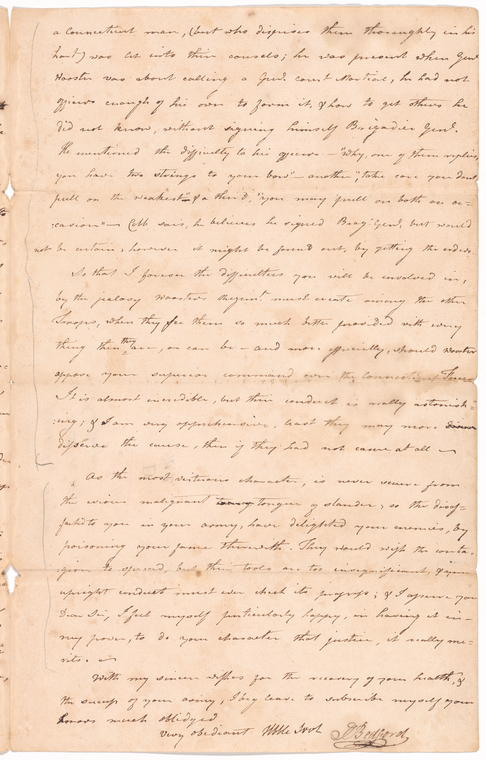 a Connecticut man, (but who dispises them thoroughly in his
heart) was let into their counsels; he was present when Genl
Wooster was about calling a Genl. court Martial, he had not
officers enough of his own to form it, & how to get others he
did not know, without signing himself Brigadier Genl.
He mentioned the difficulty to his officers — "Why, one of them replies,
you have two strings to your bow" — another, "take care you dont
pull on the weakest" — & a third, "you may pull on both on oc-
:casion" — Cobb says, he believes he signed Brig: Genl, but would
not be certain, however it might be found out, by getting the orders
So that I foresee the difficulties you will be involved in,
by the jealousy Woosters Regimt. must create among the other
Troops, when they see them so much better provided with every
thing than they are, or can be — and more especially, should Wooster
oppose your superior command over the Connecticut Forces
It is almost incredible, but their conduct is really astonish-
:ing; & I am very apprehensive, least they may more
disserve the cause, than if they had not came at all —
As the most virtuous character, is never secure from
the envious malignant tongue of slander; so the disaf-
fected to you in your army, have delighted your enemies, by
poisoning your fame therewith. They would wish the conta-
gion to spread, but their tools are too insignificant, & your
upright conduct must ever check its progress; & I assure you
Dear Sir, I feel myself particularly happy, in having it in
my power, to do your character that justice, it really me-
rits. —
With my sincere wishes for the recovery of your health, &
the success of your army, I beg leave to subscribe myself your
Honors much obliged
very obedient Hble Servt
Bedford